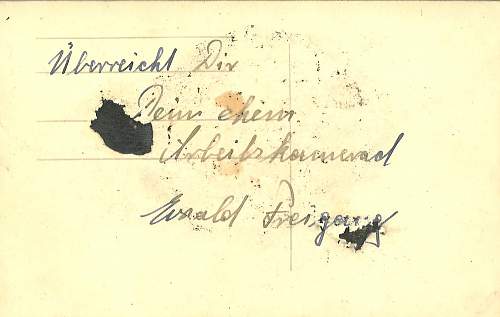 Überreicht Dir
Dein ehem
Arbeitskamerad
Ewald Freigang